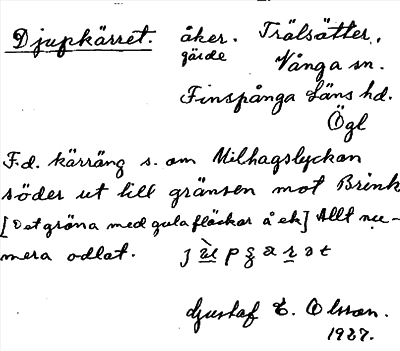 Djupkärret. åker. Trälsätter,
gärde Vånga sn.
Finspånga Läns hd.
Ögl
F.d. kärräng s. om Milhagslyckan
söder ut till gränsen mot Brink
[Det gröna med gula fläckar å ek] Allt nu-
mera odlat.
Gustaf E. Olsson.
1937.